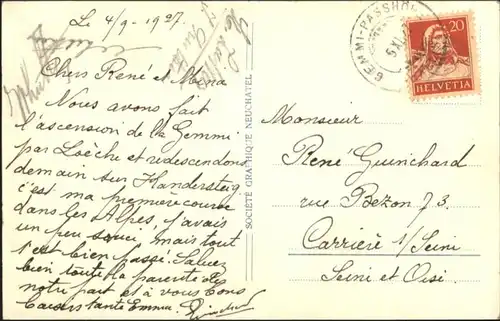 Le 4/9-1927.
Chers René et Mina
Nous avons fait
l'ascension de la Gemmi
par Loèche et redescendons
demain sur Kandersteg
c'est ma première course
dans les Alpes, j'avais
un peu souci, mais tout
s'est bien passé. Saluez
bien toute la parenté de
notre part et à vous bons
baisers tante Emma.
SOCIÉTÉ GRAPHIQUE NEUCHATEL
GEMMI-PASSHÖ
20
HELVETIA
Monsieur
René Guinchard
rue Bezon 73
Carrière s/Seine
Seine et Oise.